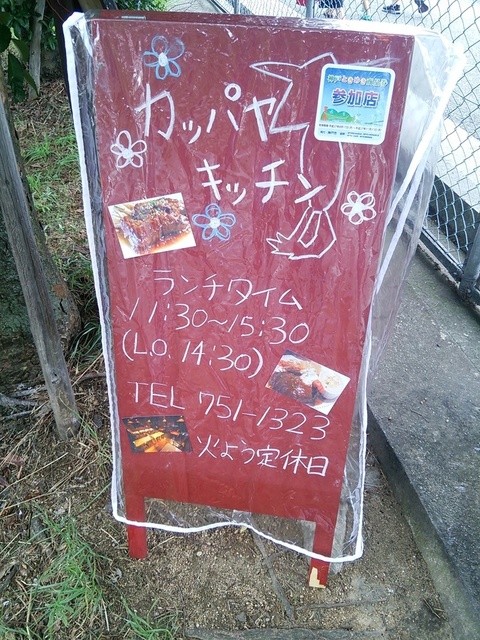 カッパヤ
キッチン
参加店
ランチタイム
11:30〜15:30
(L.O. 14:30)
TEL 751-1323
火よう定休日